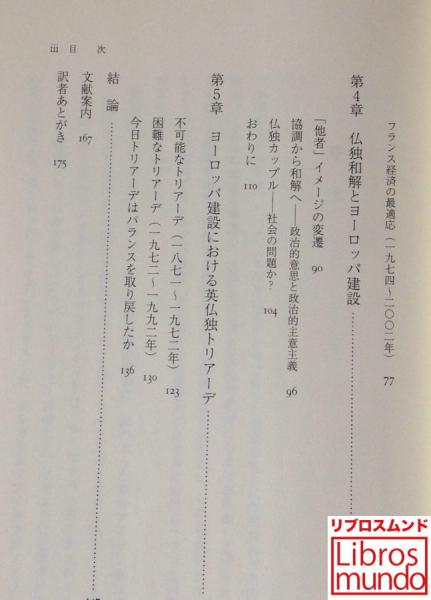 フランス経済の最適応（一九七四～二〇〇二年） 77
第4章 仏独和解とヨーロッパ建設
「他者」イメージの変遷 90
協調から和解へ――政治的意思と政治的主意主義 96
仏独カップル――社会の問題か？ 104
おわりに 110
第5章 ヨーロッパ建設における英仏独トリアーデ
不可能なトリアーデ（一八七一～一九七二年） 123
困難なトリアーデ（一九七二～一九九二年） 130
今日トリアーデはバランスを取り戻したか 136
結論
文献案内 167
訳者あとがき 175
iii 目次
リブロスムンド
Libros
mundo